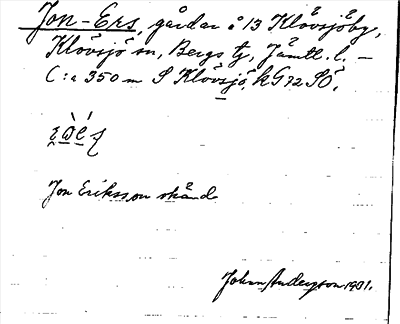 Jon-Ers, gårdar å 13 Klövsjöby,
Klövsjö sn, Bergs tg, Jämtl. l. –
C:a 350 m S Klövsjö, kG72SÖ.
Jon Eriksson skånd
Johan Anderson 1901.